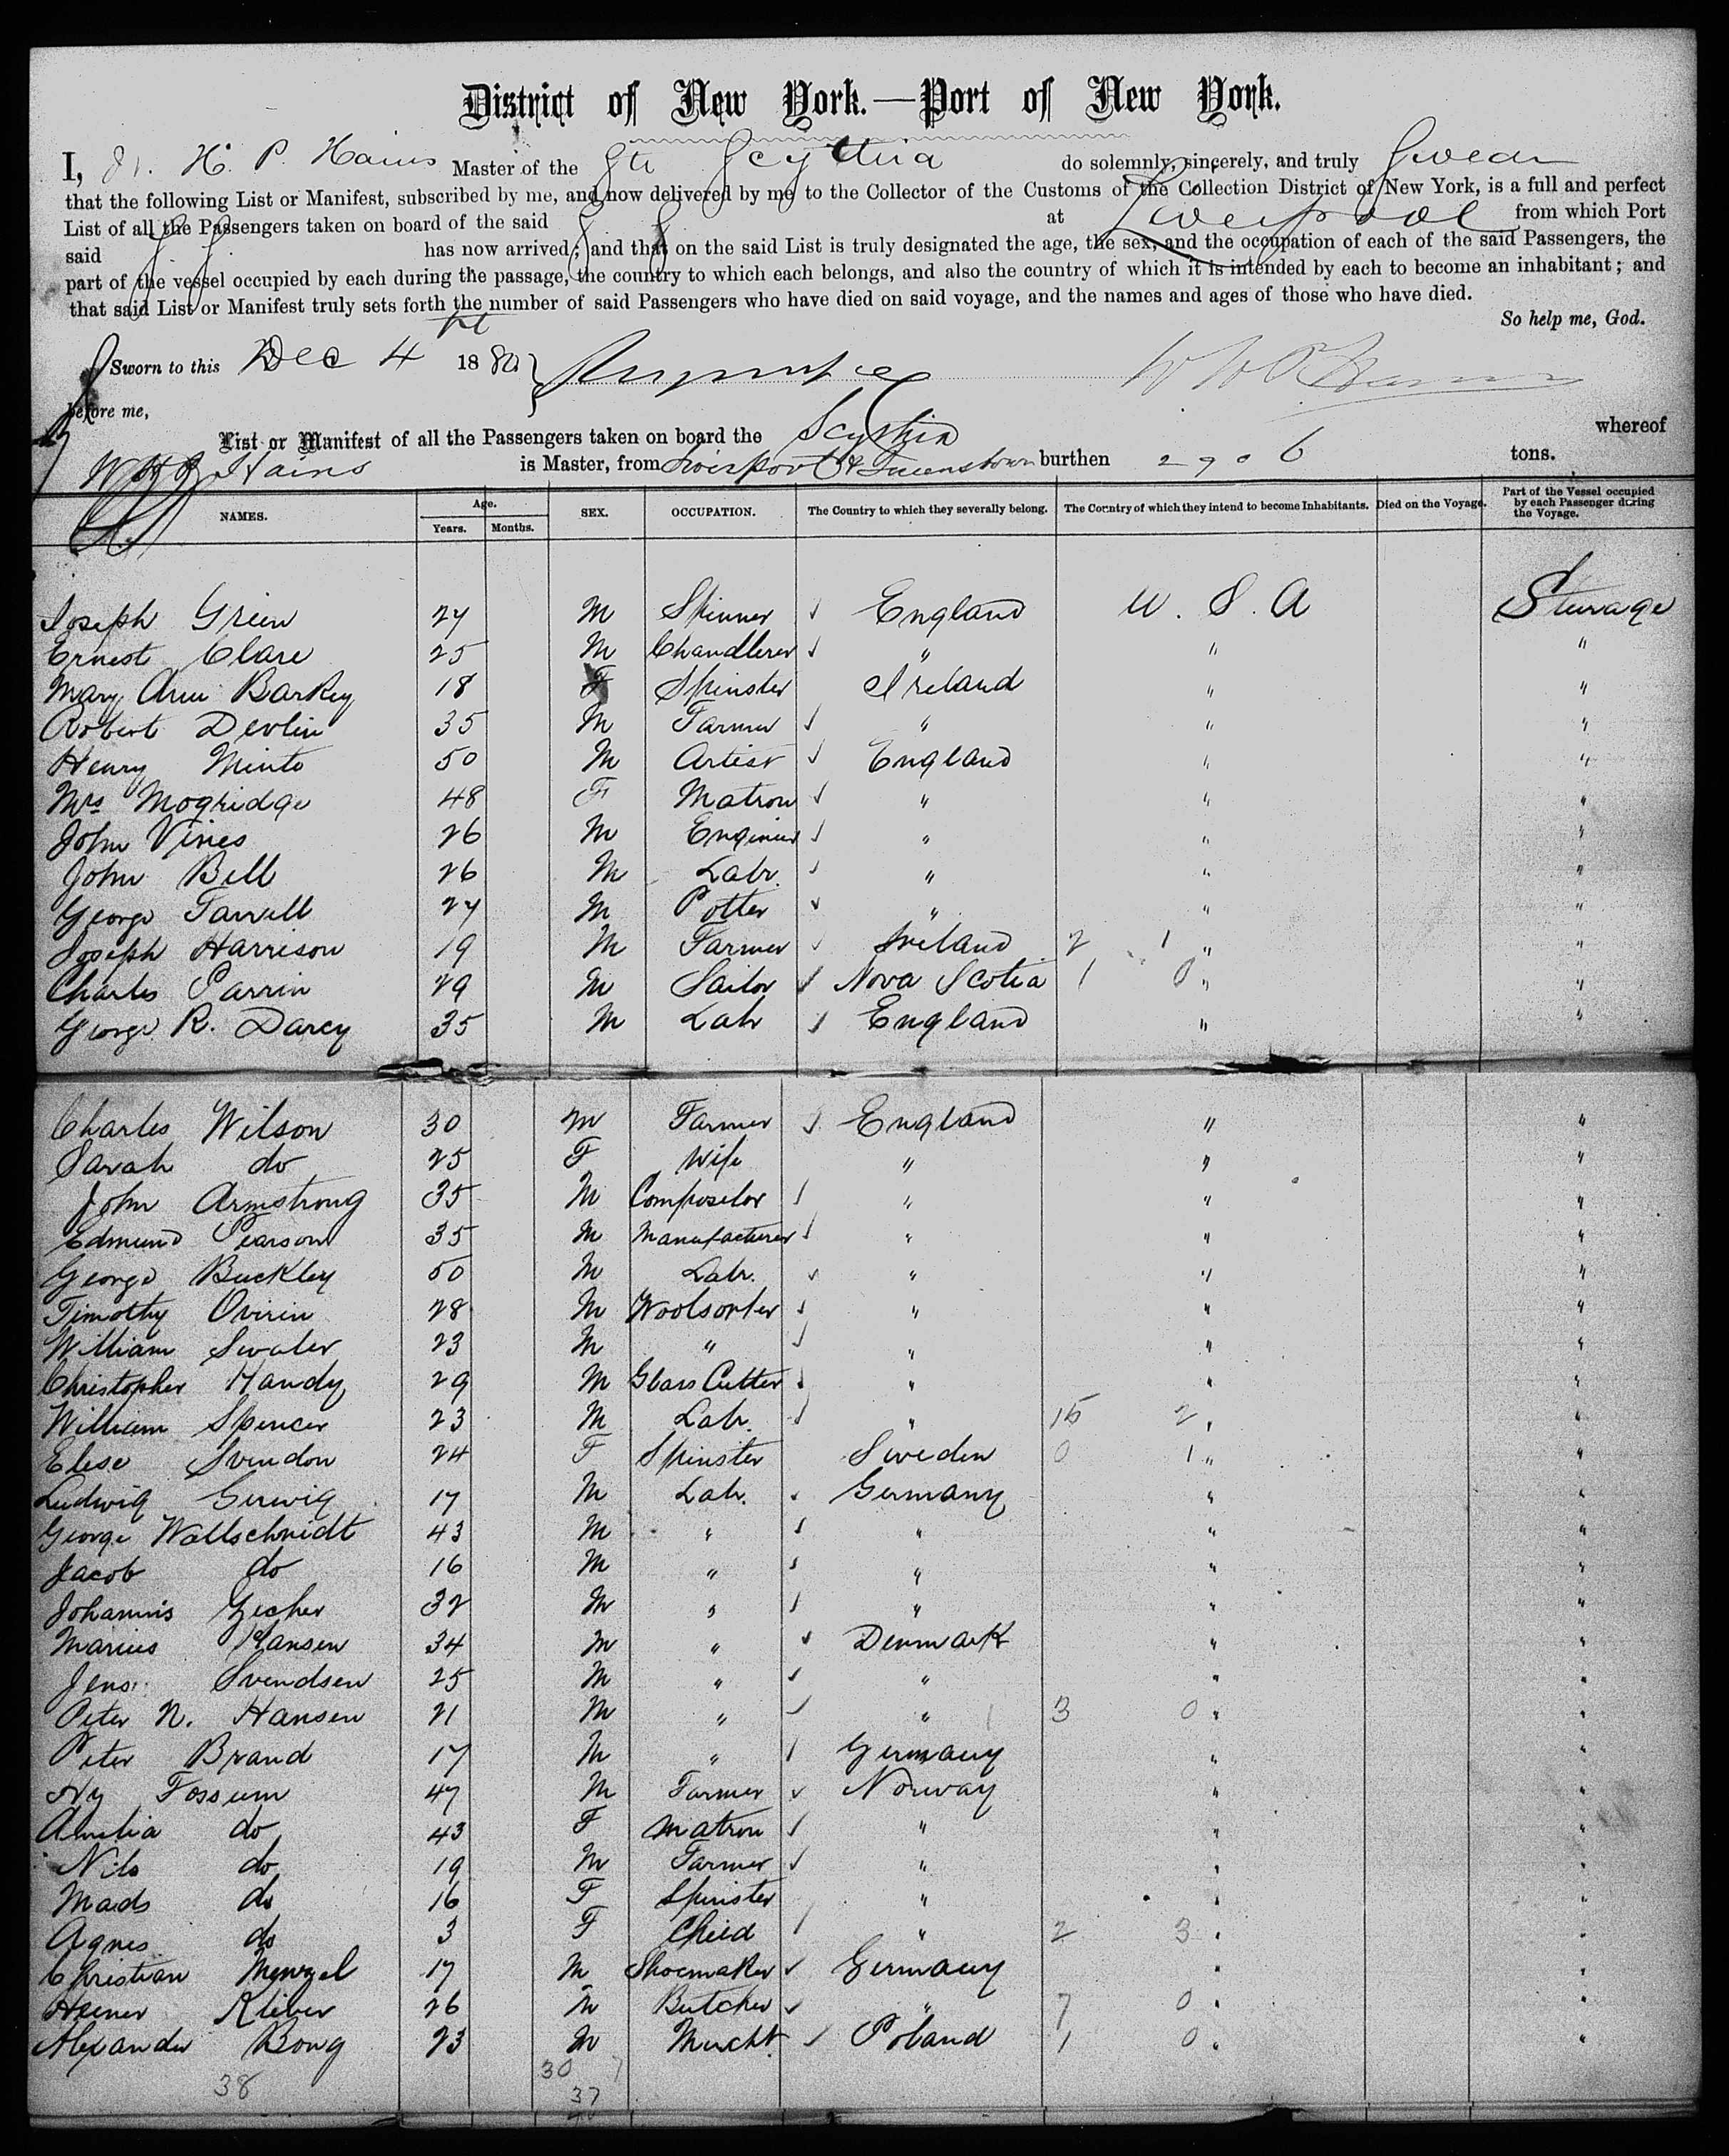 District of New York.—Port of New York.
I, H. P. Hains Master of the Str Scythia do solemnly, sincerely, and truly Swear
that the following List or Manifest, subscribed by me, and now delivered by me to the Collector of the Customs of the Collection District of New York, is a full and perfect
List of all the Passengers taken on board of the said at Liverpool from which Port
said has now arrived; and that on the said List is truly designated the age, the sex, and the occupation of each of the said Passengers, the
part of the vessel occupied by each during the passage, the country to which each belongs, and also the country of which it is intended by each to become an inhabitant; and
that said List or Manifest truly sets forth the number of said Passengers who have died on said voyage, and the names and ages of those who have died.
So help me, God.
Sworn to this Dec 4 1880
before me,
List or Manifest of all the Passengers taken on board the Scythia whereof
Hains is Master, from Liverpool & Queenstown burthen 2906 tons.
NAMES. Age. Years. Months. SEX. OCCUPATION. The Country to which they severally belong. The Country of which they intend to become Inhabitants. Died on the Voyage. Part of the Vessel occupied by each Passenger during the Voyage.
Joseph Green 24 M Spinner England U. S. A Steerage
Ernest Clare 25 M Chandlerer " " "
Mary Ann Barkey 18 F Spinster Ireland " "
Robert Devlin 35 M Farmer " " "
Henry Minto 50 M Artist England " "
Mrs Mogridge 48 F Matron " " "
John Vines 26 M Engineer " " "
John Bell 26 M Labr. " " "
George Farrell 24 M Potter " " "
Joseph Harrison 19 M Farmer Ireland 2 1 " "
Charles Parrin 29 M Sailor Nova Scotia 1 0 " "
George R. Darcy 35 M Labr England " "
Charles Wilson 30 M Farmer England " "
Sarah do 25 F Wife " " "
John Armstrong 35 M Compositor " " "
Edmund Pearson 35 M Manufacturer " " "
George Buckley 50 M Labr. " " "
Timothy Ovirin 28 M Woolsorter " " "
William Swaler 23 M " " " "
Christopher Handy 29 M Glass Cutter " " "
William Spencer 23 M Labr. " 15 2 " "
Elese Svendon 24 F Spinster Sweden 0 1 " "
Ludwig Gerwig 17 M Labr. Germany " "
George Wallschmidt 43 M " " " "
Jacob do 16 M " " " "
Johannis Zecher 32 M " " " "
Marius Hansen 34 M " Denmark " "
Jens Svendsen 25 M " " " "
Peter N. Hansen 21 M " " 3 0 " "
Peter Brand 17 M " Germany " "
Ny Fossum 47 M Farmer Norway " "
Amelia do 43 F Matron " " "
Nils do 19 M Farmer " " "
Mads do 16 F Spinster " " "
Agnes do 3 F Child " 2 3 " "
Christian Menzel 17 M Shoemaker Germany " "
Heiner Kleber 26 M Butcher " 7 0 " "
Alexander Bong 23 M Mercht. Poland 1 0 " "
38 30 7
37